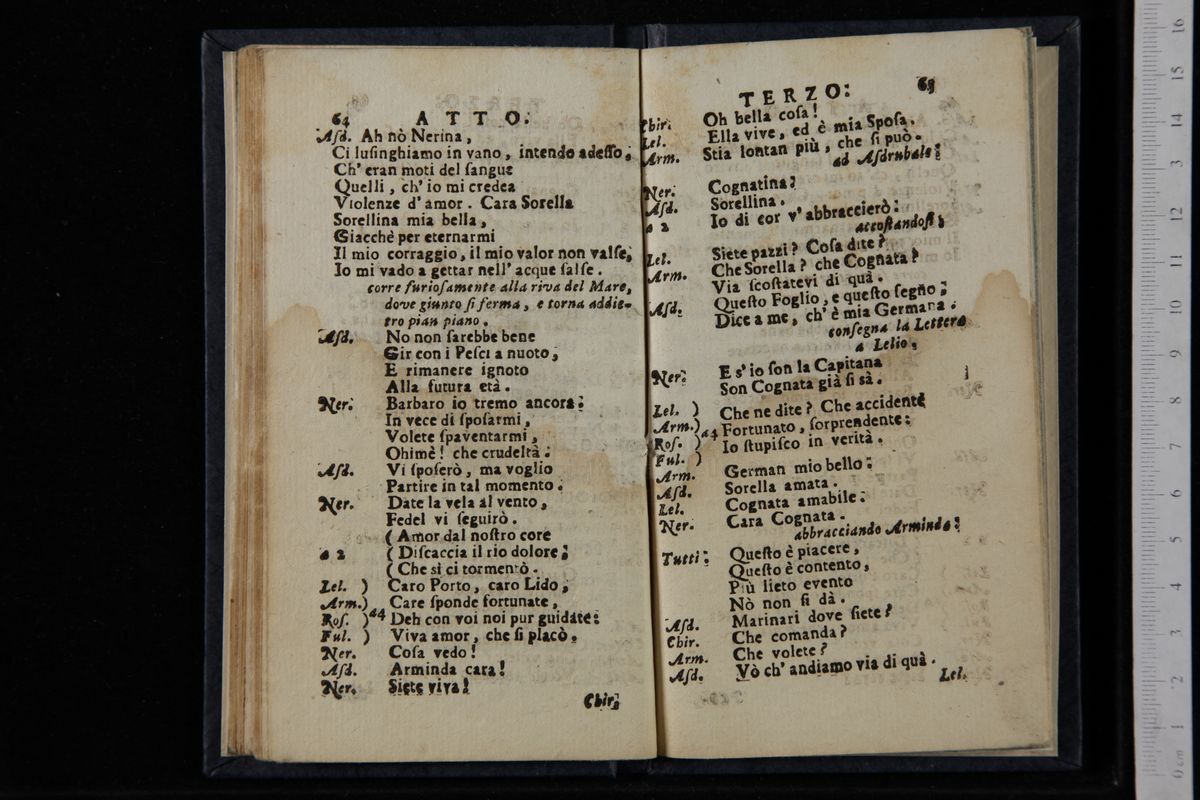 64 ATTO.
Asd. Ah nò Nerina,
Ci lusinghiamo in vano, intendo adesso,
Ch' eran moti del sangue
Quelli, ch' io mi credea
Violenze d' amor. Cara Sorella
Sorellina mia bella,
Giacchè per eternarmi
Il mio corraggio, il mio valor non valse;
Io mi vado a gettar nell' acque salse.
corre furiosamente alla riva del Mare,
dove giunto si ferma, e torna addie-
tro pian piano.
Asd. No non sarebbe bene
Gir con i Pesci a nuoto,
E rimanere ignoto
Alla futura età.
Ner. Barbaro io tremo ancora:
In vece di sposarmi,
Volete spaventarmi,
Ohimè! che crudeltà.
Asd. Vi sposerò, ma voglio
Partire in tal momento.
Ner. Date la vela al vento,
Fedel vi seguirò.
(Amor dal nostro core
a 2 (Discaccia il rio dolore;
(Che sì ci tormentò.
Lel. ) Caro Porto, caro Lido,
Arm.) Care sponde fortunate,
Ros. ) a4 Deh con voi noi pur guidate:
Ful. ) Viva amor, che si placò.
Ner. Cosa vedo!
Asd. Arminda cara!
Ner. Siete viva!
Chir.
TERZO. 65
Chir. Oh bella cosa!
Lel. Ella vive, ed è mia Sposa.
Arm. Stia lontan più, che si può.
ad Asdrubale;
Ner. Cognatina:
Asd. Sorellina.
a 2 Io di cor v' abbraccierò:
accostandosi;
Lel. Siete pazzi? Cosa dite?
Arm. Che Sorella? che Cognata?
Via scostatevi di quà.
Asd. Questo Foglio, e questo segno;
Dice a me, ch' è mia Germana.
consegna la Lettera
a Lelio.
Ner. E s' io son la Capitana
Son Cognata già si sà.
Lel. ) Che ne dite? Che accidente
Arm.) a4 Fortunato, sorprendente:
Ros. ) Io stupisco in verità.
Ful. )
Arm. German mio bello:
Asd. Sorella amata.
Lel. Cognata amabile:
Ner. Cara Cognata.
abbracciando Arminda:
Tutti: Questo è piacere,
Questo è contento,
Più lieto evento
Nò non si dà.
Asd. Marinari dove siete?
Chir. Che comanda?
Arm. Che volete?
Asd. Vò ch' andiamo via di quà.
Lel.